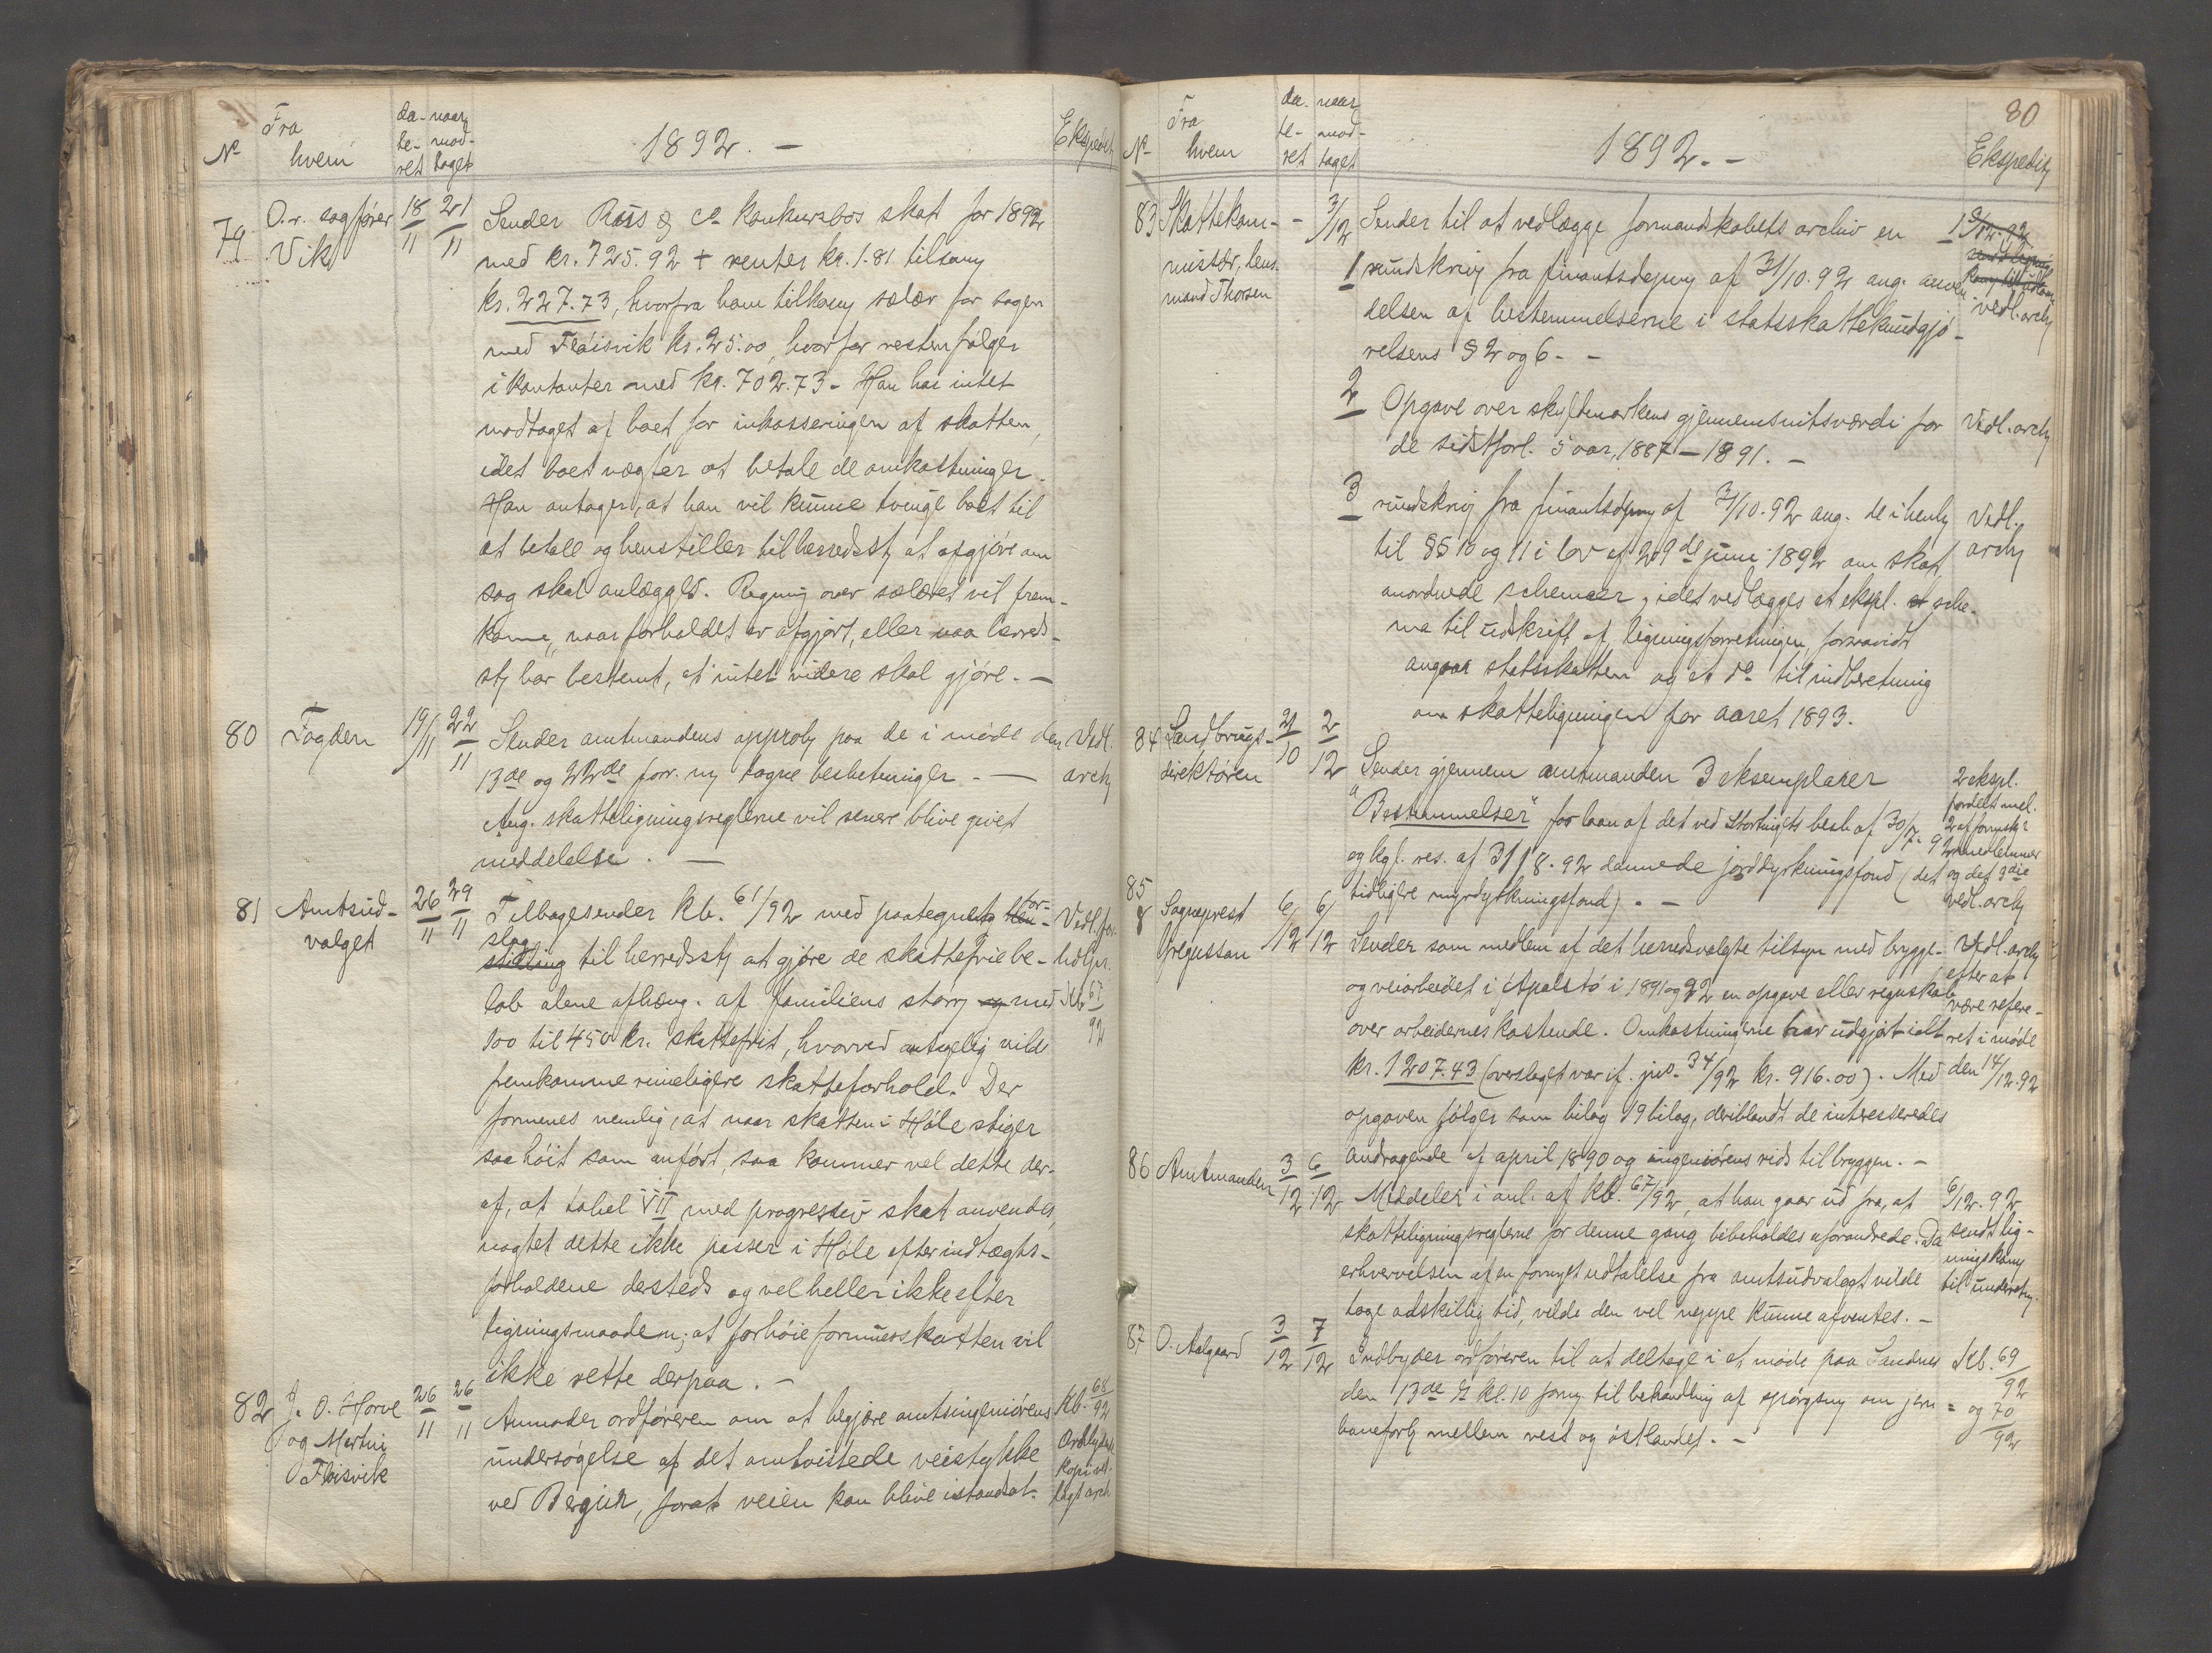 No
Fra
hvem
da-
te-
ret
naar
mod-
taget
1892. —
Eksped
79
O.r. sagfører
Vik
18/11
21/11
Sender Röss & Co konkursbos skat for 1892
med kr. 725.92 + renter kr. 1.81 tilsamm
kr. 727.73, hvorfra ham tilkomm salær for sagen
med Flöisvik kr. 25.00, hvorfor resten følger
i kontanter med kr. 702.73 - Han har intet
modtaget af boet for inkasseringen af skatten,
idet boet vægter at betale de omkostninger.
Han antager, at han vil kunne tvinge boet til
at betale og henstiller til herredsst at afgjøre om
sag skal anlægges. Regning over salæret vil frem-
komme, naar forholdet er afgjørt, eller naar herreds-
st har bestemt, at intet videre skal gjøre. —
80
Fogden
19/11
22/11
Sender amtmandens approb paa de i møde den
13de og 22de forr. m tagne beslutninger. —
Ang. skatteligningsreglerne vil senere blive givet
meddelelse. —
Vedl.
arch
81
Amtsud-
valget
26/11
29/11
Tilbagesender kb. 61/92 med paategning for-
slag til herredsst at gjøre de skattefrie be-
løb alene afhæng. af familiens størr med
100 til 450 kr. skattefrit, hvorved antagelig vilde
fremkomme rimeligere skatteforhold. Der
formenes nemlig, at naar skatten i Høle stiger
saa høit som anført, saa kommer vel dette der-
af, at tabel VII med progressiv skat anvendes,
uagtet dette ikke passer i Høle efter indtægts-
forholdene dersteds og vel heller ikke efter
ligningsmaaden; at forhøie formuesskatten vil
ikke rette derpaa. —
Vedl. for
hdlpr.
Kb 67/92
82
J. O. Horve
og Martin
Fløisvik
26/11
26/11
Anmoder ordføreren om at begjære amtsingeniørens
undersøgelse af det omtvistede veistykke
ved Bergün, forat veien kan blive istandsat.
Kb. 68/92
kopi ved-
lagt arch
80
No
Fra
hvem
da-
te-
ret
naar
mod-
taget
1892. —
Ekspedit
83
Skattekom-
missær, lens-
mand Thorsen
-
3/12
Sender til at vedlægge formandskabets archiv en
1 rundskriv fra finantsdepm af 31/10.92 ang. anven-
delsen af bestemmelserne i statsskattekundgjø-
relsens § 2 og 6. —
1
vedl. arch
2
Opgave over skyldmarkens gjennemsnitsværdi for
de sidstforl. 5 aar, 1887—1891. —
Vedl. arch
3
rundskriv fra finantsdepm af 31/10.92 ang. de i henh
til §§ 10 og 11 i lov af 29de juni 1892 om skat
anordnede schemaer, idet vedlægges et ekspl. sche-
ma til udskrift af ligningsforretningen forsaavidt
angaar statsskatten og et do til indberetning
om skatteligningen for aaret 1893.
Vedl.
arch
84
Landbrugs-
direktøren
21/10
2/12
Sender gjennem amtmanden 3 eksemplarer
"Bestemmelser" for laan af det ved Stortingets besl. af 30/7.92
og kgl. res. af 31/8.92 dannede jorddyrkningsfond (det
tidligere myrdyrkningsfond). —
2 ekspl.
fordelt mel.
2 af formsk:s
medlemmer
og det 3die
vedl. arch
85
Sogneprest
Gregussen
6/12
6/12
Sender som medlem af det herredsvalgte tilsyn med brygge-
og veiarbeidet i Apalstø i 1891 og 92 en opgave eller regnskab
over arbeidernes kostende. Omkostningerne har udgjort ialt
kr. 1207.43 (overslaget var if. jno. 34/92 kr. 916.00). Med
opgaven følger som bilag 19 bilag, deriblandt de interesseredes
andragende af april 1890 og ingeniørens rids til bryggen. —
Vedl. arch
efter at
være refere-
ret i møde
den 14/12.92
86
Amtmanden
3/12
6/12
Meddeler i anl. af kb. 67/92, at han gaar ud fra, at
skatteligningsreglerne for denne gang bibeholdes uforandrede. Da
erhvervelsen af en fornyet udtalelse fra amtsudvalget vilde
tage adskillig tid, vilde den vel neppe kunne afventes. —
6/12.92
sendt lig-
ningskomm
til underretn.
87
O. Aalgaard
3/12
7/12
Indbyder ordføreren til at deltage i et møde paa Sandnes
den 13de ds kl. 10 form. til behandling af spørgsm om jern-
baneforb mellem vest og østlandet. —
Kb. 69/92
og 70/92